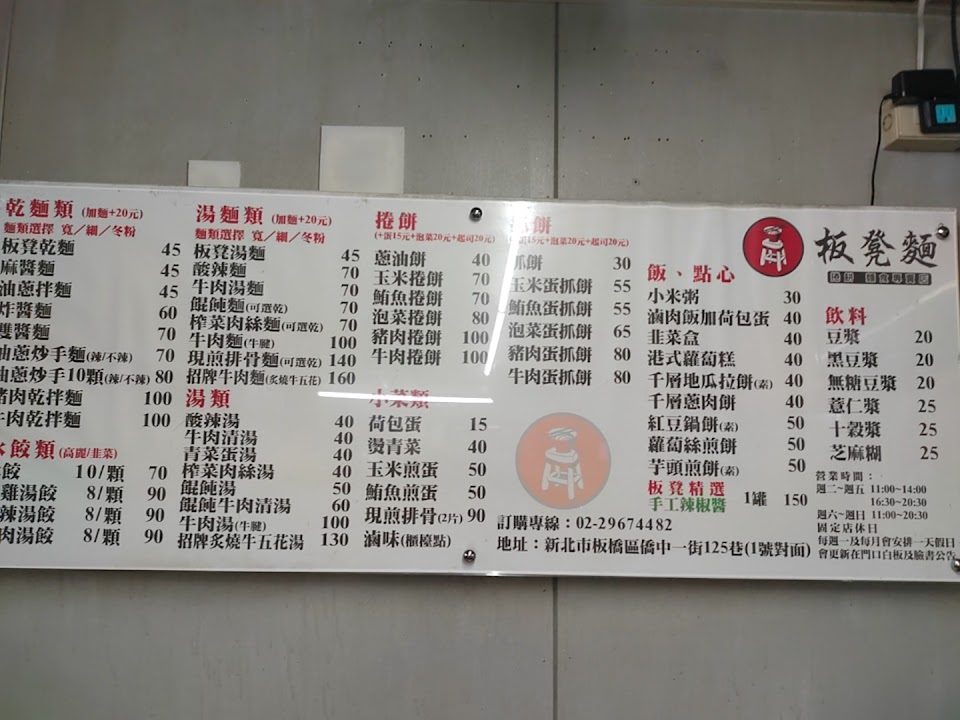 乾麵類 (加麵+20元)
麵類選擇 寬／細／冬粉
板凳乾麵 45
麻醬麵 45
油蔥拌麵 45
炸醬麵 60
雙醬麵 70
油蔥炒手麵(辣/不辣) 70
油蔥炒手10顆(辣/不辣) 80
豬肉乾拌麵 100
牛肉乾拌麵 100
水餃類 (高麗/韭菜)
餃 10/顆 70
雞湯餃 8/顆 90
辣湯餃 8/顆 90
肉湯餃 8/顆 90
湯麵類 (加麵+20元)
麵類選擇 寬／細／冬粉
板凳湯麵 45
酸辣麵 70
牛肉湯麵 70
餛飩麵(可選乾) 70
榨菜肉絲麵(可選乾) 70
牛肉麵(牛腱) 100
現煎排骨麵(可選乾) 140
招牌牛肉麵(炙燒牛五花) 160
湯類
酸辣湯 40
牛肉清湯 40
青菜蛋湯 40
榨菜肉絲湯 40
餛飩湯 50
餛飩牛肉清湯 60
牛肉湯(牛腱) 100
招牌炙燒牛五花湯 130
捲餅
(+蛋15元+泡菜20元+起司20元)
蔥油餅 40
玉米捲餅 70
鮪魚捲餅 70
泡菜捲餅 80
豬肉捲餅 100
牛肉捲餅 100
小菜類
荷包蛋 15
燙青菜 40
玉米煎蛋 50
鮪魚煎蛋 50
現煎排骨(2片) 90
滷味(櫃檯點)
抓餅
(+蛋15元+泡菜20元+起司20元)
抓餅 30
玉米蛋抓餅 55
鮪魚蛋抓餅 55
泡菜蛋抓餅 65
豬肉蛋抓餅 80
牛肉蛋抓餅 80
飯、點心
小米粥 30
滷肉飯加荷包蛋 40
韭菜盒 40
港式蘿蔔糕 40
千層地瓜拉餅(素) 40
千層蔥肉餅 40
紅豆鍋餅(素) 50
蘿蔔絲煎餅 50
芋頭煎餅(素) 50
板凳精選
手工辣椒醬 1罐 150
板凳麵
飲料
豆漿 20
黑豆漿 20
無糖豆漿 20
薏仁漿 25
十穀漿 25
芝麻糊 25
營業時間：
週二~週五 11:00~14:00
16:30~20:30
週六~週日 11:00~20:30
固定店休日
每週一及每月會安排一天假日
會更新在門口白板及臉書公告
訂購專線：02-29674482
地址：新北市板橋區僑中一街125巷(1號對面)